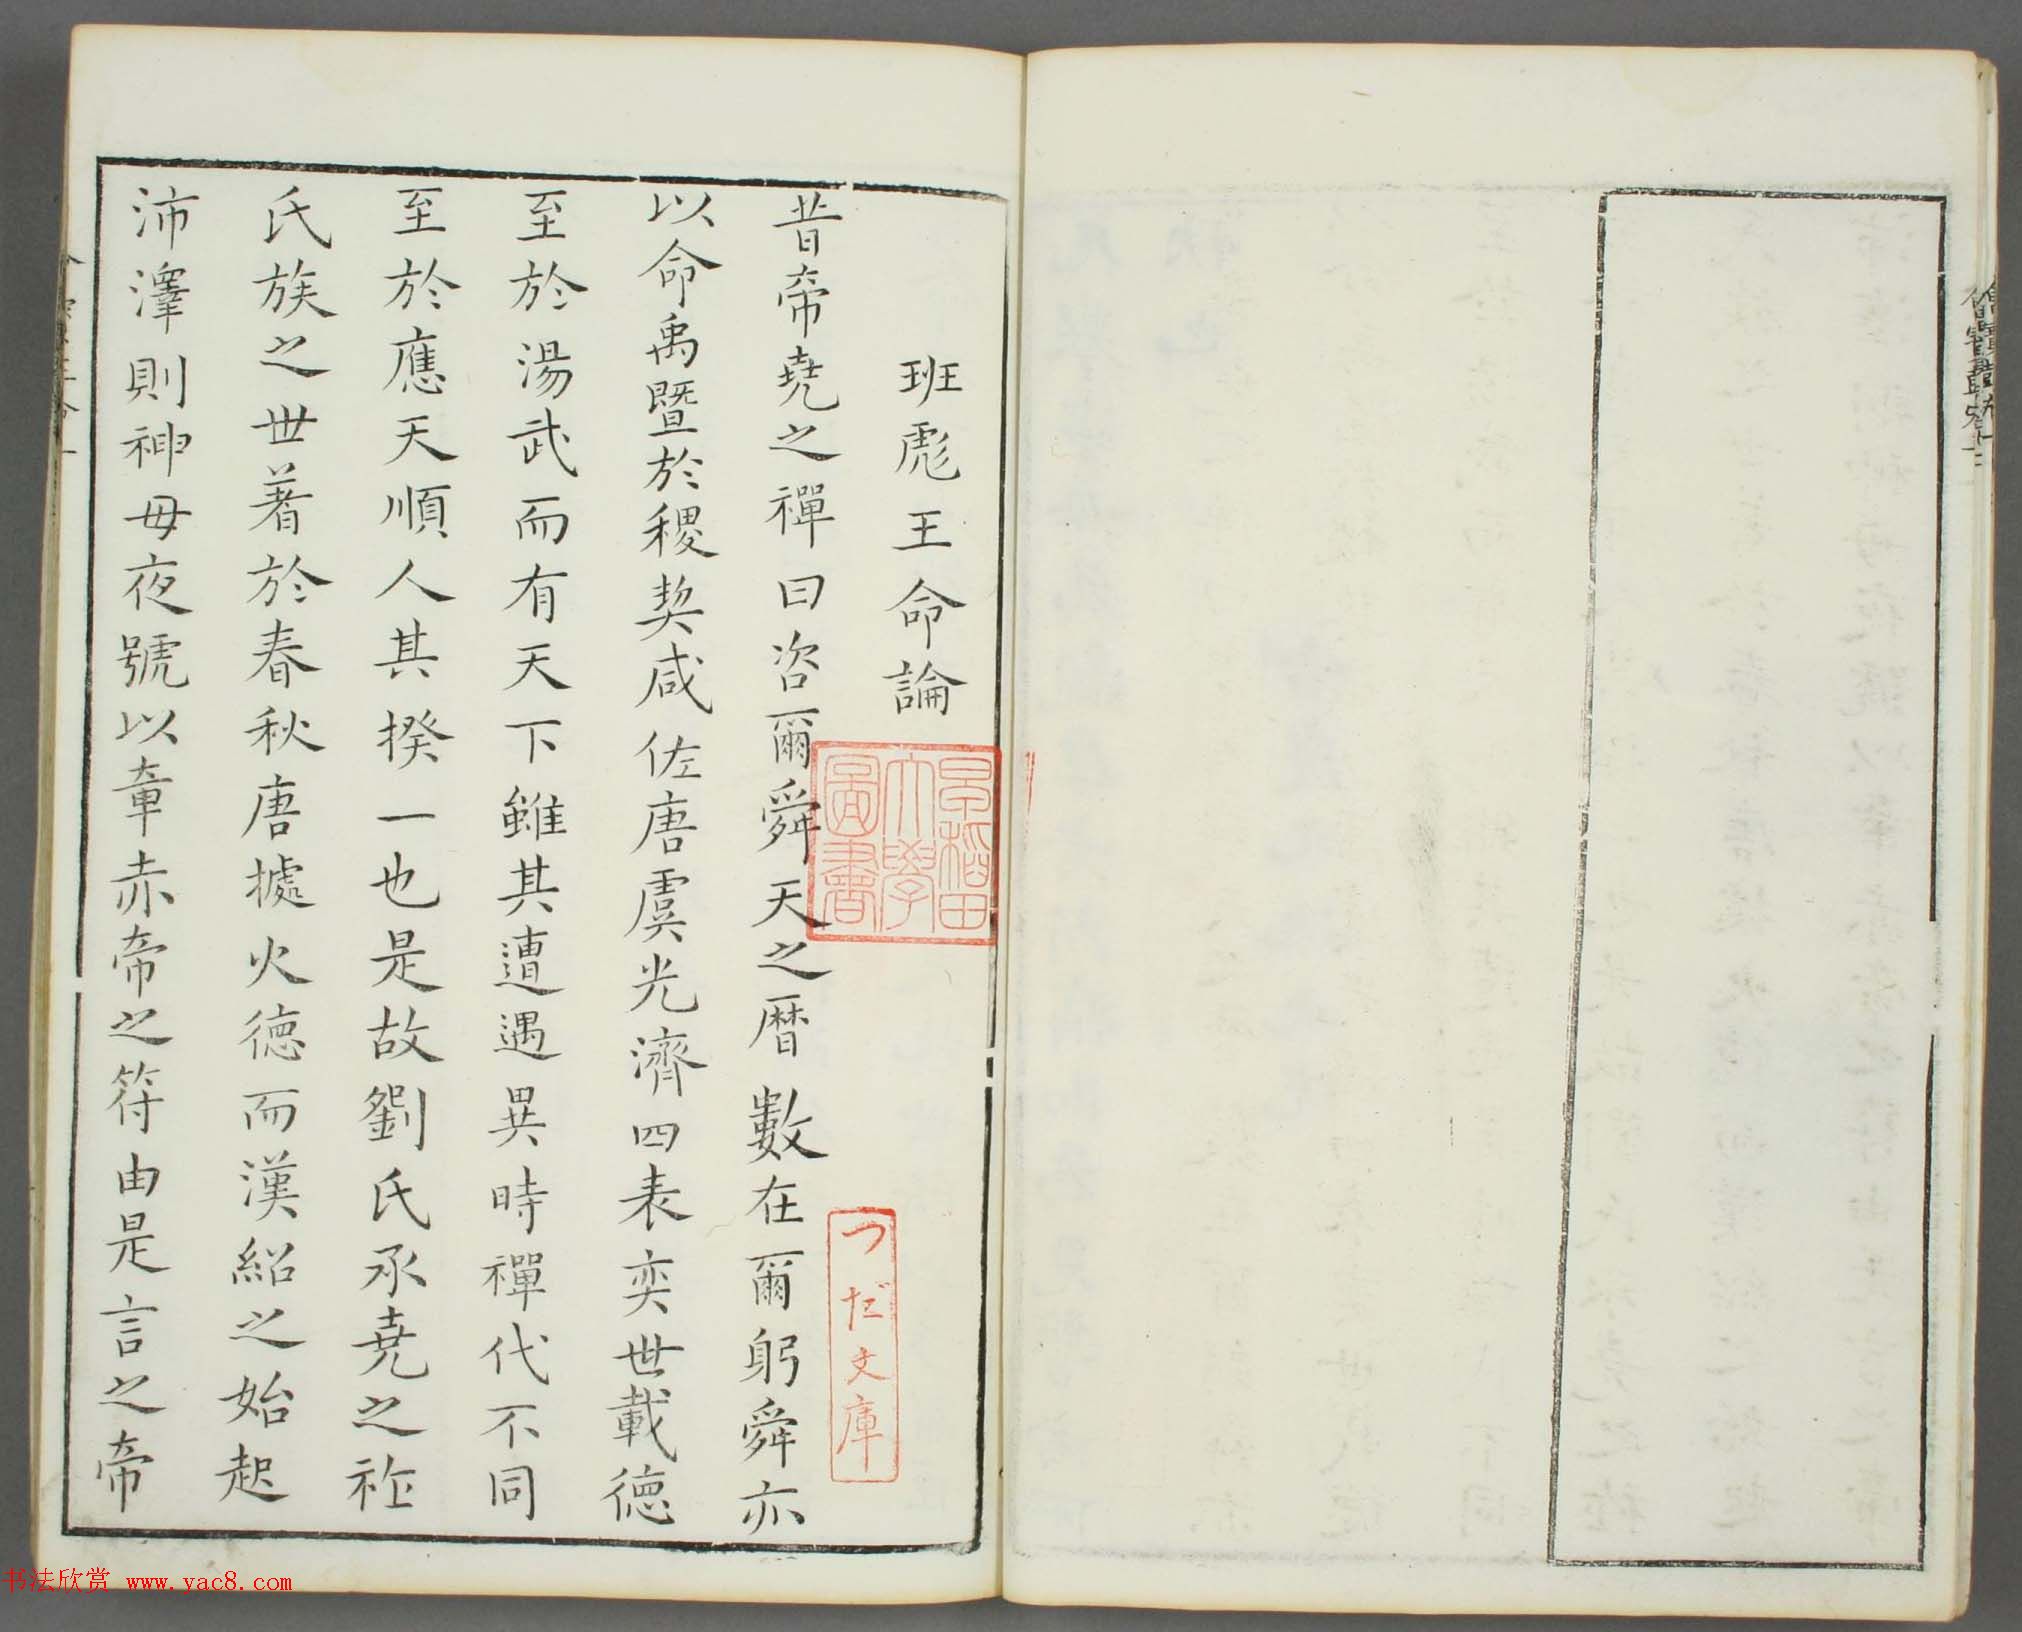 班彪王命論
昔帝堯之禪曰咨爾舜天之曆數在爾躬舜亦
以命禹暨於稷契咸佐唐虞光濟四表奕世載德
至於湯武而有天下雖其遭遇異時禪代不同
至於應天順人其揆一也是故劉氏承堯之祚
氏族之世著於春秋唐據火德而漢紹之始起
沛澤則神母夜號以章赤帝之符由是言之帝
早稻田
大學
圖書
つだ文庫
书法欣赏 www.yac8.com